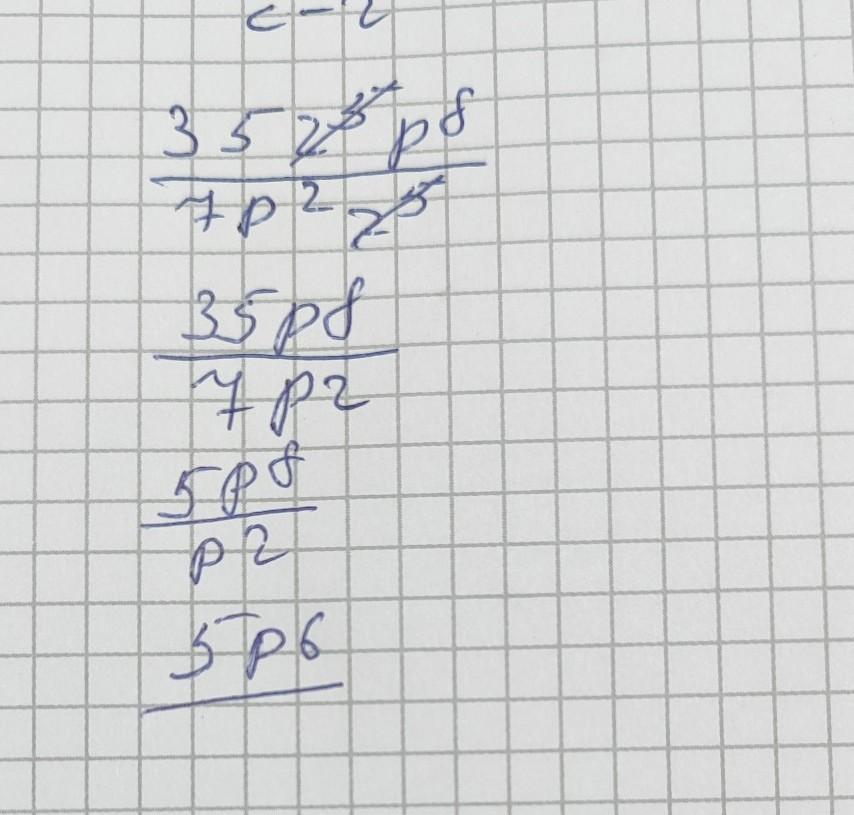 c - 2
35 2⁵ p⁸
7 p² 2⁵
35 p8
7 p2
5 p⁸
p2
5 p6